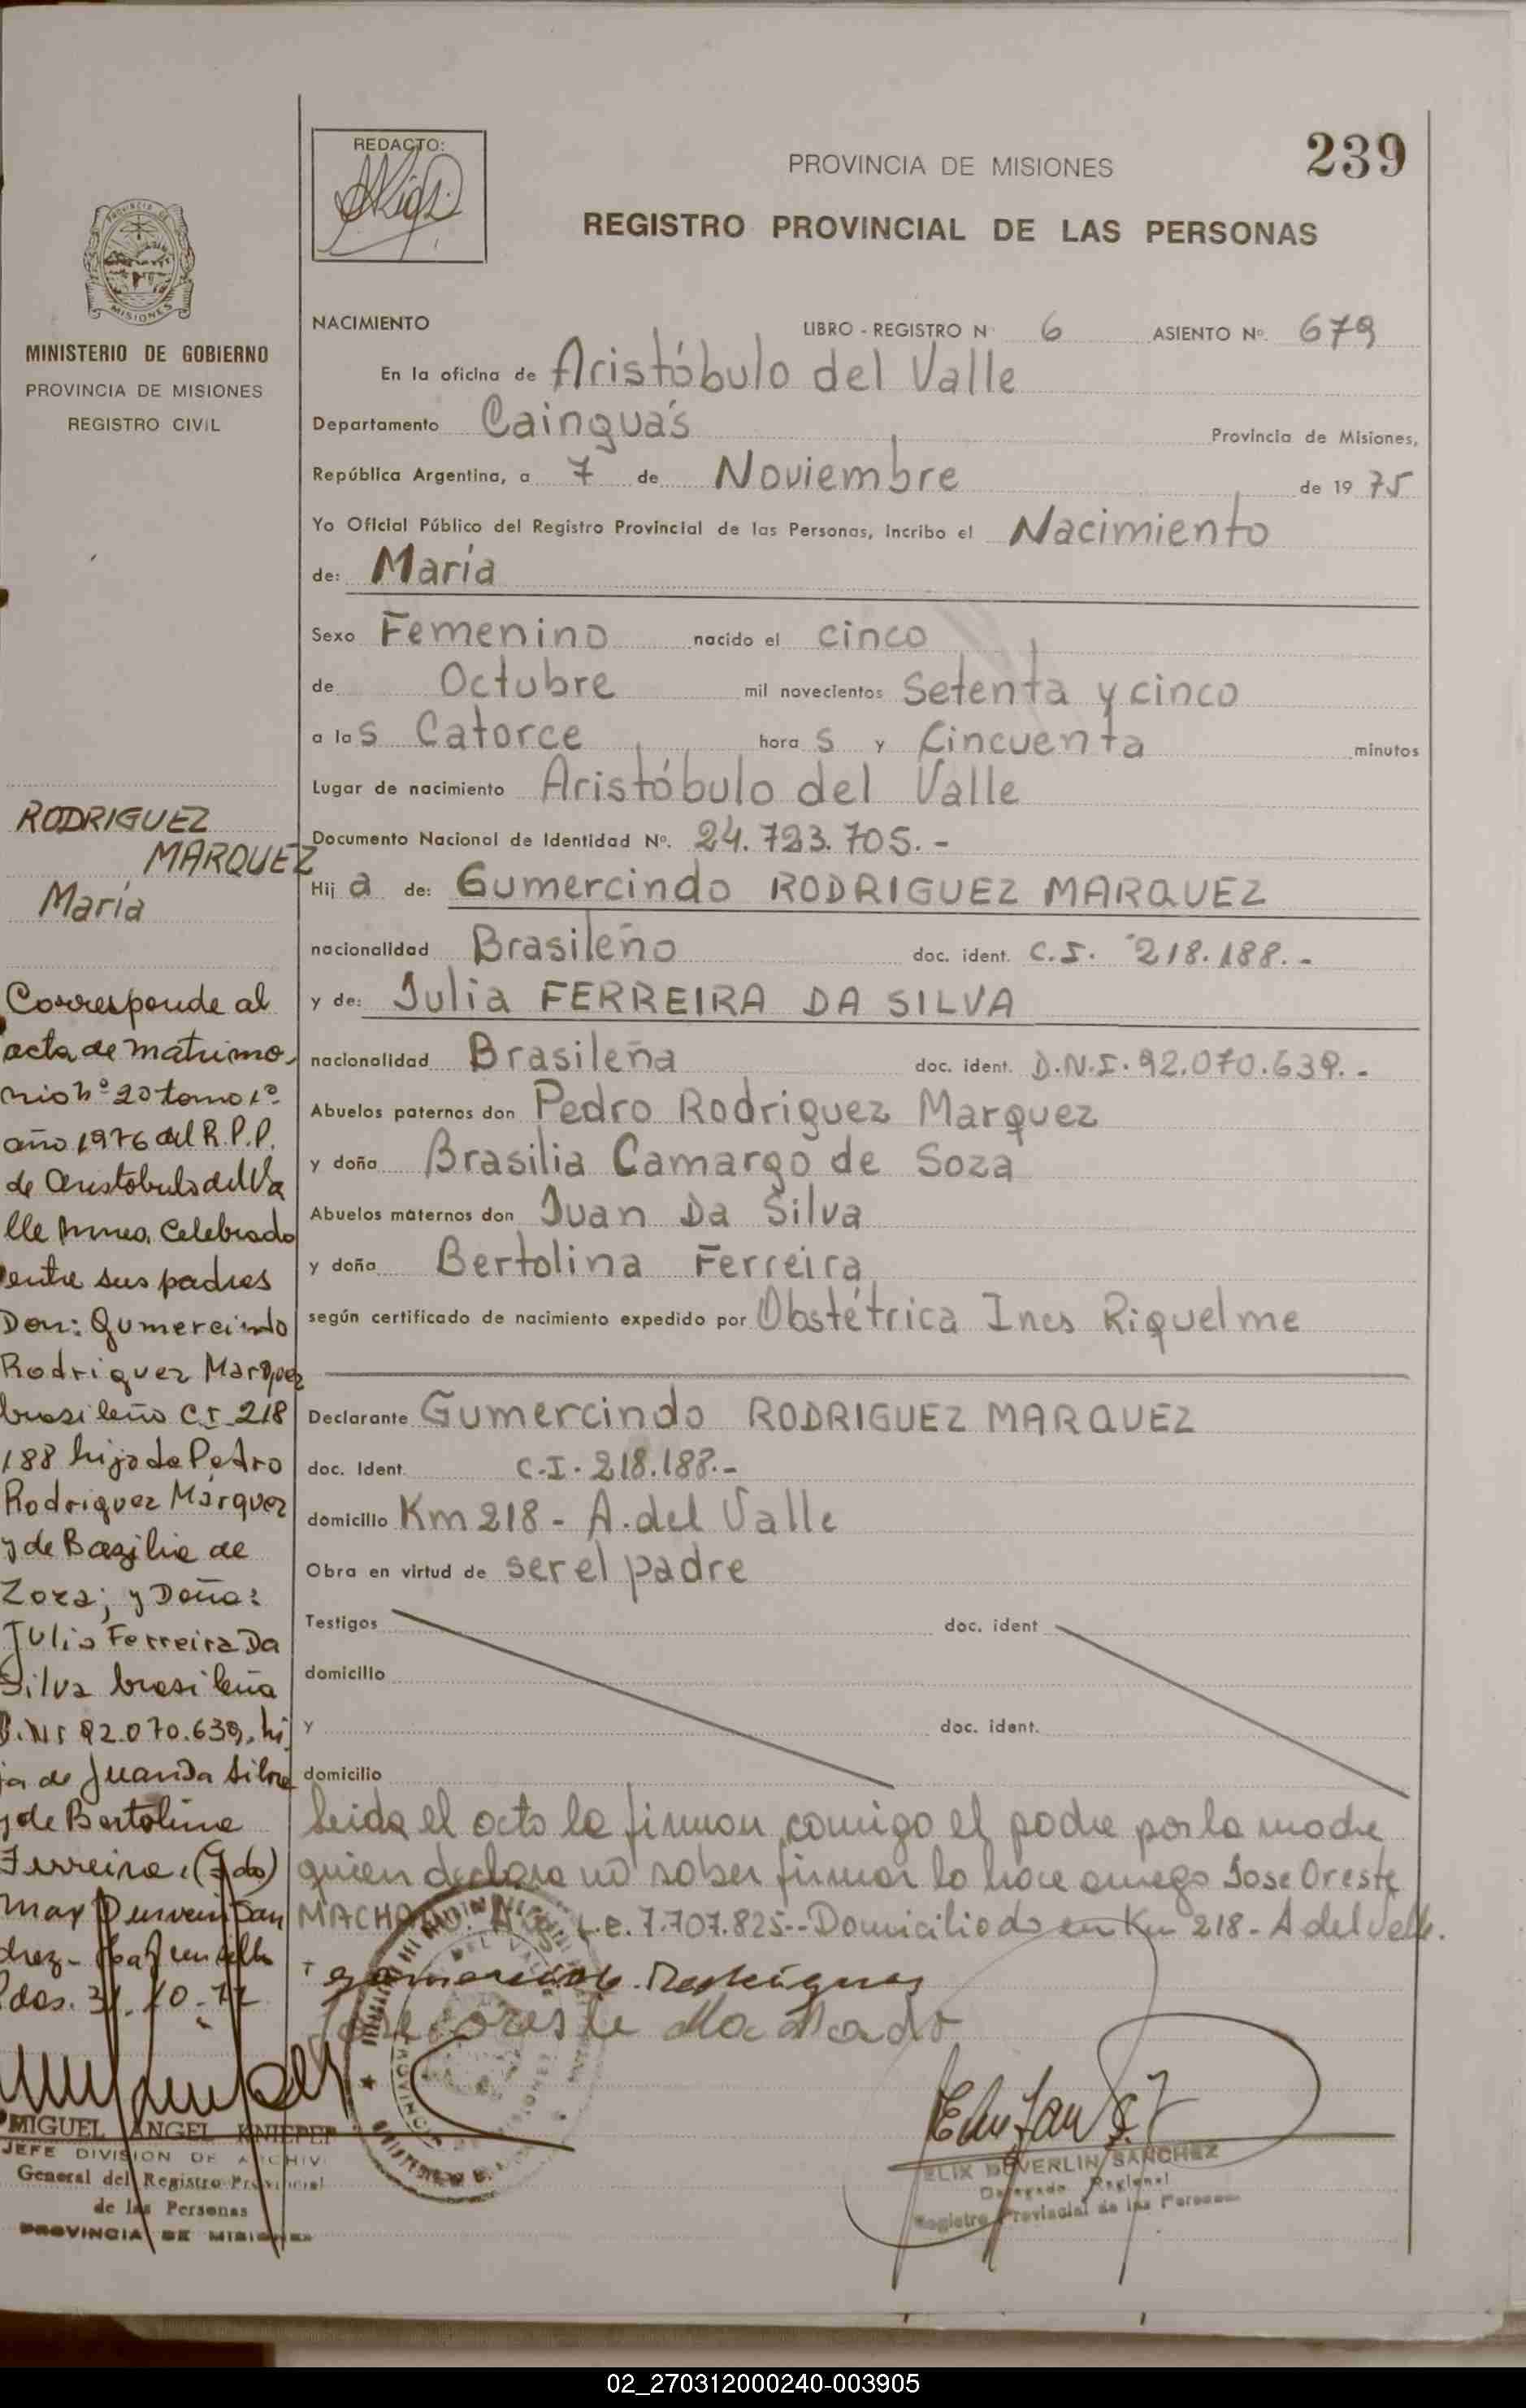 239
REDACTO:
PROVINCIA DE MISIONES
REGISTRO PROVINCIAL DE LAS PERSONAS
MISIONES
MINISTERIO DE GOBIERNO
PROVINCIA DE MISIONES
REGISTRO CIVIL
NACIMIENTO LIBRO - REGISTRO N 6 ASIENTO Nº. 679
En la oficina de Aristóbulo del Valle
Departamento Cainguás Provincia de Misiones,
República Argentina, a 7 de Noviembre de 19 75
Yo Oficial Público del Registro Provincial de las Personas, incribo el Nacimiento
de: María
Sexo Femenino nacido el cinco
de Octubre mil novecientos Setenta y cinco
a las Catorce horas y Cincuenta minutos
Lugar de nacimiento Aristóbulo del Valle
Documento Nacional de Identidad Nº. 24.723.705.-
Hija de: Gumercindo RODRIGUEZ MARQUEZ
nacionalidad Brasileño doc. ident. C.I. 218.188.-
y de: Julia FERREIRA DA SILVA
nacionalidad Brasileña doc. ident. D.N.I. 92.070.639.-
Abuelos paternos don Pedro Rodriguez Marquez
y doña Brasilia Camargo de Soza
Abuelos maternos don Juan Da Silva
y doña Bertolina Ferreira
según certificado de nacimiento expedido por Obstétrica Ines Riquelme
Declarante Gumercindo RODRIGUEZ MARQUEZ
doc. Ident C.I. 218.188.-
domicilio Km 218 - A. del Valle
Obra en virtud de ser el padre
Testigos doc. ident
domicilio
y doc. ident.
domicilio
Leida el acta la firman comigo el padre por la madre
quien declara no saber firmar lo hace amego Jose Oreste
MACHADO. L.E. 7.707.825-- Domiciliado en Km 218 - A del Valle.
Jose Oreste Machado
ELIX DUVERLIN SANCHEZ
Delegado Regional
Registro Provincial de las Personas
RODRIGUEZ
MARQUEZ
María
Corresponde al
acta de matrimo-
nio nº 20 tomo 1º
año 1976 del R.P.P.
de Aristobulo del Va
lle Mnes. Celebrado
entre sus padres
Don: Gumercindo
Rodriguez Marquez
brasileño CI 218
188 hijo de Pedro
Rodriguez Márquez
y de Bazilia de
Zoza; y Doña:
Julia Ferreira Da
Silva brasileña
D.NI 92.070.639, hi
ja de Juan Da Silva
y de Bertolina
Ferreira. (Fdo)
Pdas. 31.10.77
MIGUEL ANGEL KNIEPEP
JEFE DIVISION DE ARCHIV
General del Registro Provincial
de las Personas
PROVINCIA DE MISIONES
02_270312000240-003905